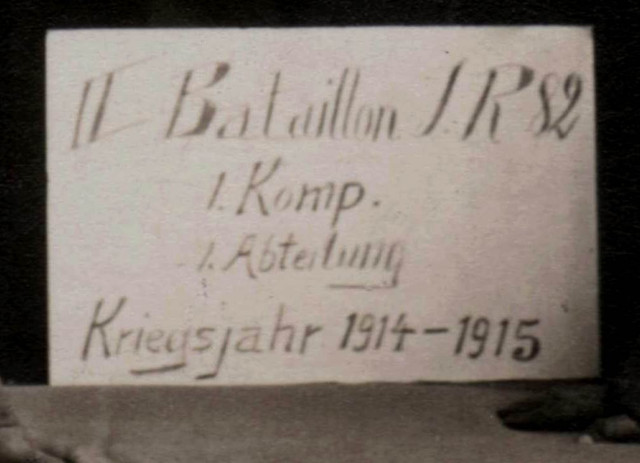 II Bataillon I.R 82
1. Komp.
1. Abteilung
Kriegsjahr 1914-1915